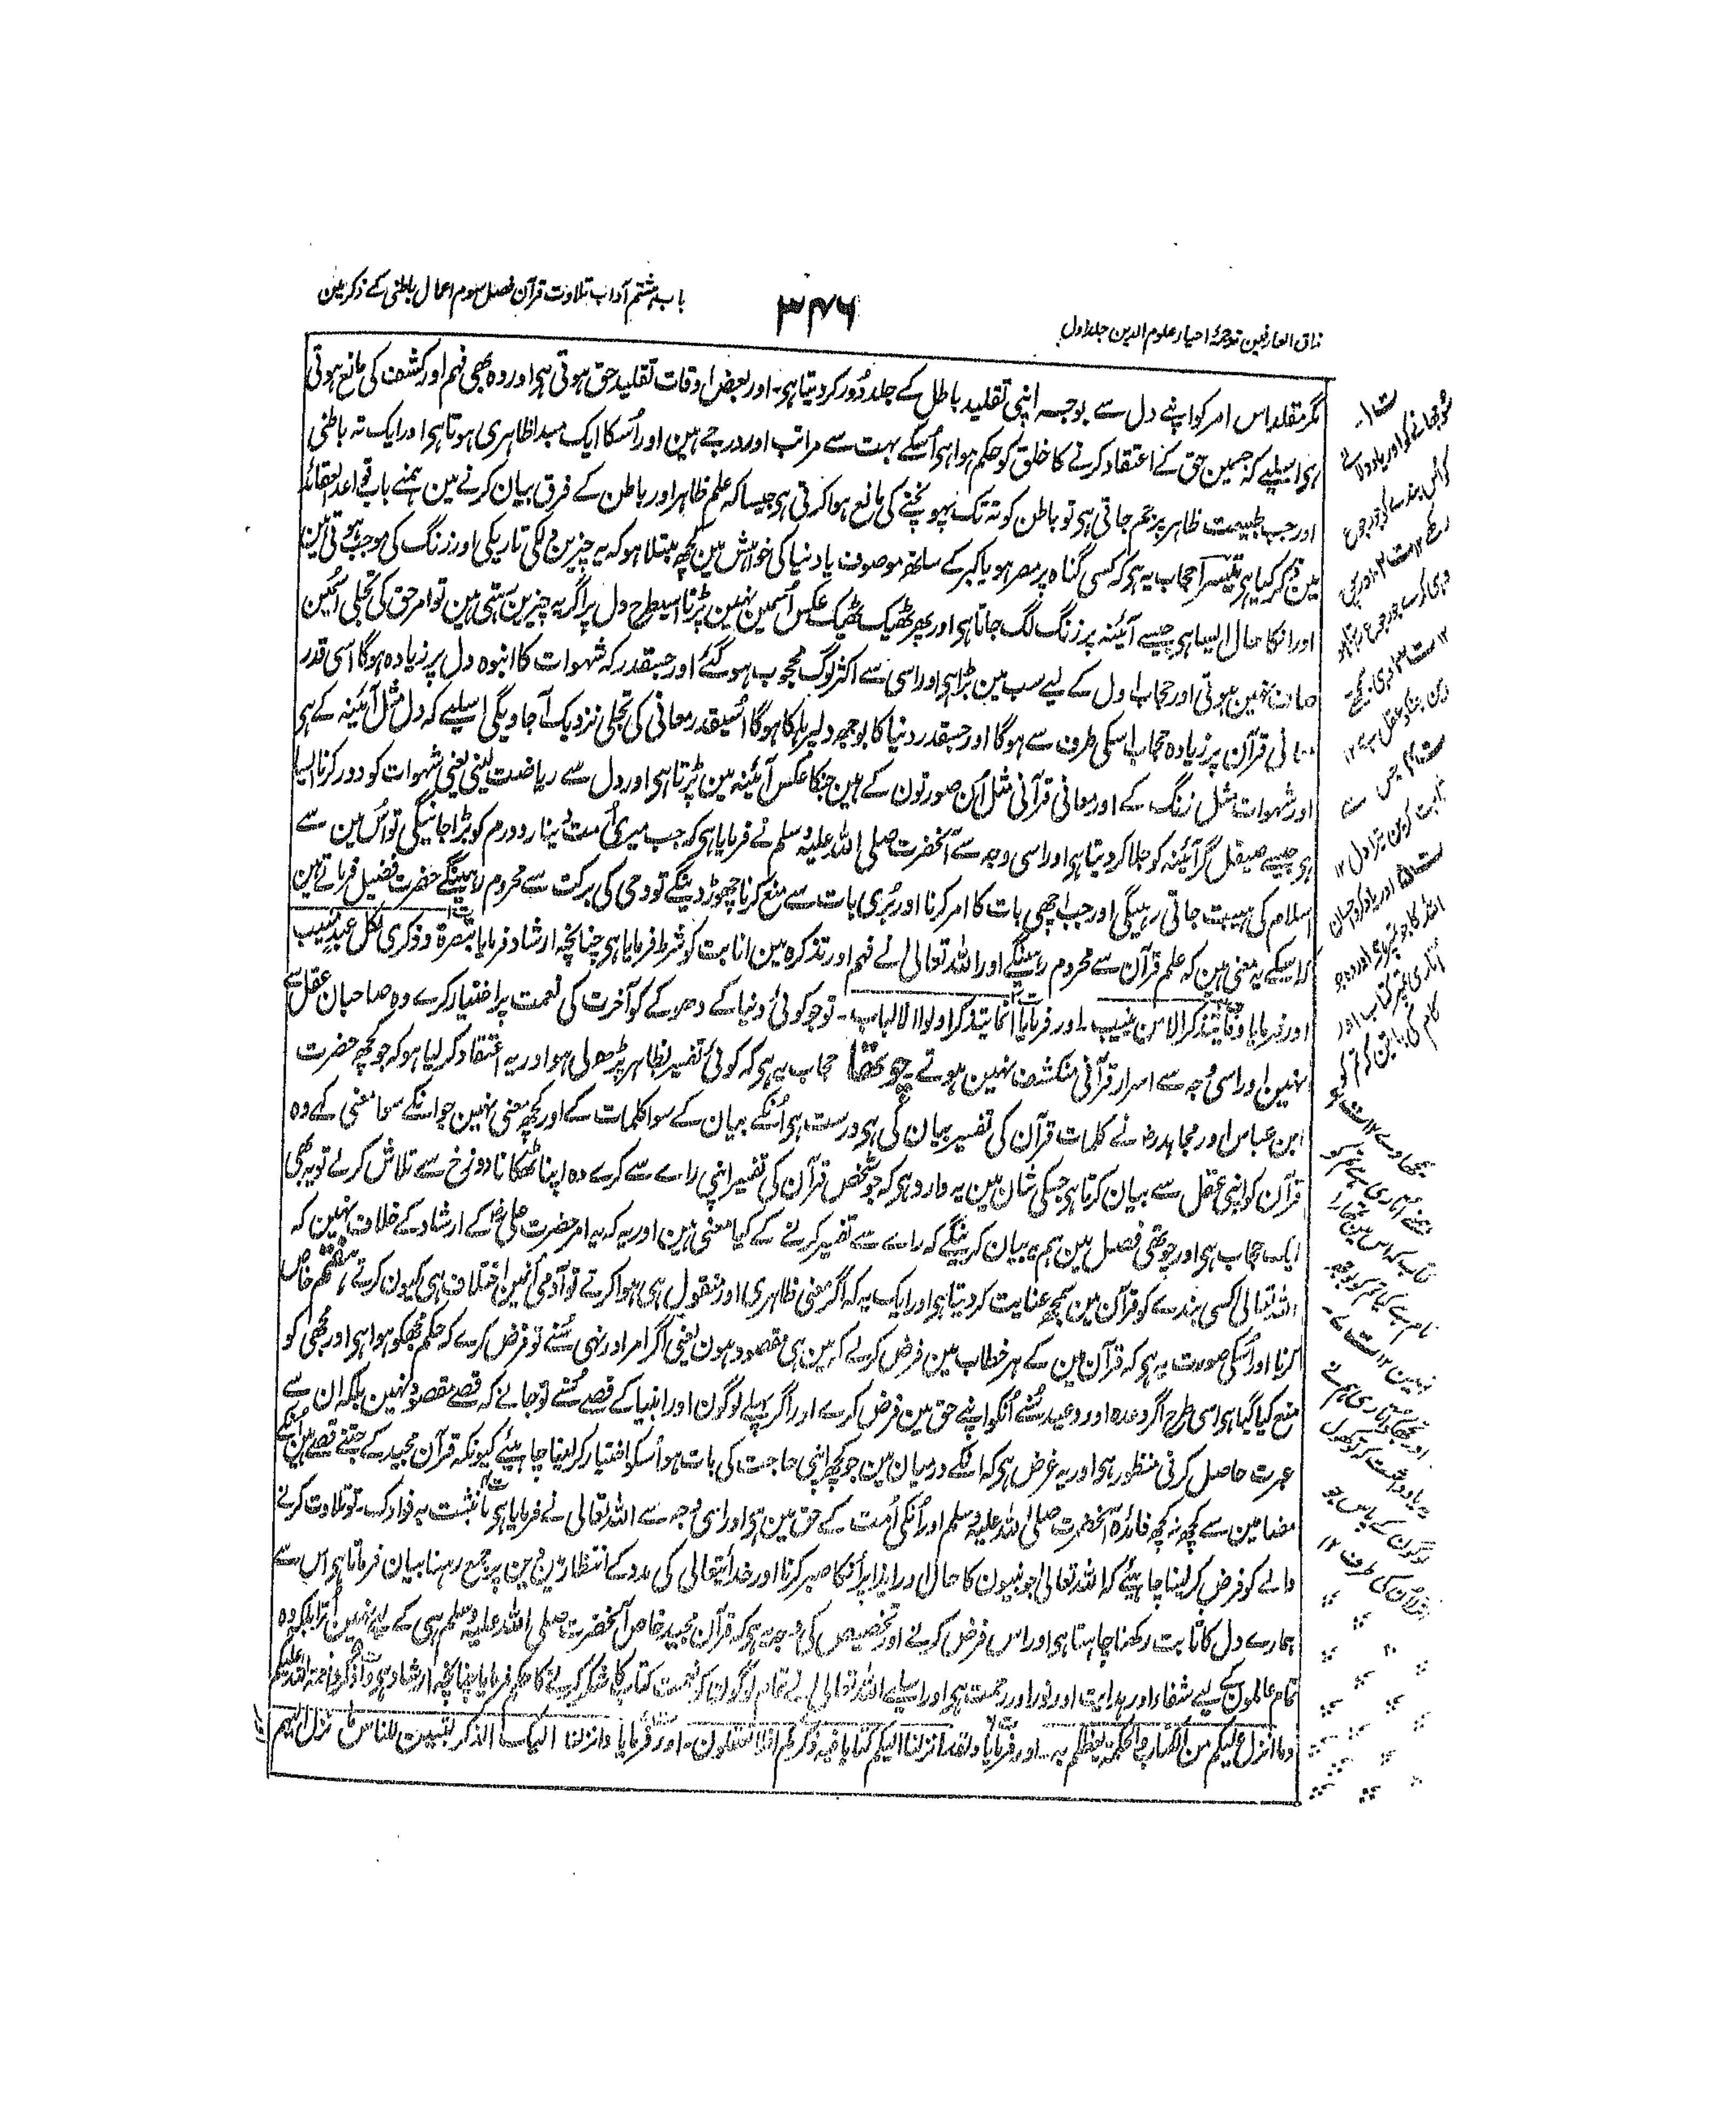 مذاق العارفین ترجمۂ احیاء علوم الدین جلد اول
۳۴۶
باب ہشتم آداب تلاوت قرآن فصل سوم اعمال باطنی کے ذکر مین
مگر مقلد اس امر کو اپنے دل سے بوجہ اپنی تقلید باطل کے جلد دُور کر دیتا ہی۔ اور بعض اوقات تقلید حق ہوتی ہی اور وہ بھی فہم اور کشف کی مانع ہوتی
ہی اسلیے کہ جسمین حق کے اعتقاد کرنے کا خلق کو حکم ہوا ہی اُسکے بہت سے مراتب اور درجے ہین اور اُسکا ایک مبدا ظاہری ہوتا ہی اور ایک تہ باطنی
اور جب طبیعت ظاہر پر جم جاتی ہی تو باطن کو تہ تک پہونچنے کی مانع ہوا کرتی ہی جیسا کہ علم ظاہر اور باطن کے فرق بیان کرنے مین ہمنے باب قواعد العقائد
مین ذکر کیا ہی تیسرا حجاب یہ ہی کہ کسی گناہ پر مصر ہو یا کبر کے ساتھ موصوف یا دنیا کی خواہش مین کچھ مبتلا ہو کہ یہ چیزین دلکی تاریکی اور زنگ کی موجب ہوتی ہین
اور انکا حال ایسا ہی جیسے آئینہ پر زنگ لگ جاتا ہی اور پھر ٹھیک ٹھیک عکس اُسمین نہین پڑتا اسیطرح دل پر اگر یہ چیزین آتی ہین تو امر حق کی تجلی اُسمین
صاف نہین ہوتی اور حجاب دل کے لیے سب مین بڑا ہی اور اسی سے اکثر لوگ محجوب ہو گئے اور جسقدر کہ شہوات کا انبوہ دل پر زیادہ ہوگا اسی قدر
معانی قرآن پر زیادہ حجاب اسکی طرف سے ہوگا اور جسقدر دنیا کا بوجھ دلپر ہلکا ہوگا اُسیقدر معانی کی تجلی نزدیک آ جاویگی اسلیے کہ دل مثل آئینہ کے ہی
اور شہوات مثل زنگ کے اور معانی قرآنی مثل اُن صورتون کے ہین جنکا عکس آئینہ مین پڑتا ہی اور دل سے ریاضت لینی یعنی شہوات کو دور کرنا ایسا
ہی جیسے صیقل گر آئینہ کو جلا کر دیتا ہی اور اسی وجہ سے آنحضرت صلی اللہ علیہ وسلم نے فرمایا ہی کہ جب میری اُمت دینار و درم کو بڑا جانیگی تو اُس مین سے
اسلام کی ہیبت جاتی رہیگی اور جب اچھی بات کا امر کرنا اور بُری بات سے منع کرنا چھوڑ دینگے تو وحی کی برکت سے محروم رہینگے حضرت فضیل فرماتے ہین
کہ اسکے یہ معنی ہین کہ علم قرآن سے محروم رہینگے اور اللہ تعالی نے فہم اور تذکرہ مین انابت کو شرط فرمایا ہی چنانچہ ارشاد فرمایا تبصرۃ وذکری لکل عبد منیب
اور فرمایا وما یتذکر الا من ینیب۔ اور فرمایا انما یتذکر اولوا الالباب۔ تو جو کوئی دنیا کے دھوکے کو آخرت کی نعمت پر اختیار کرے وہ صاحبان عقل سے
نہین اور اسی وجہ سے اسرار قرآنی منکشف نہین ہوتے چوتھا حجاب یہ ہی کہ کوئی تفسیر بظاہر پڑھ لی ہو اور یہ اعتقاد کر لیا ہو کہ جو کچھ حضرت
ابن عباس اور مجاہد رض نے کلمات قرآن کی تفسیر بیان کی ہی درست ہی اُنکے بیان کے سوا کلمات کے اور کچھ معنی نہین جو انکے سوا معنی کہے وہ
قرآن کو اپنی عقل سے بیان کرتا ہی جسکی شان مین یہ وارد ہی کہ جو شخص قرآن کی تفسیر اپنی راے سے کرے وہ اپنا ٹھکانا دوزخ سے تلاش کر لے تو یہ بھی
ایک حجاب ہی اور چوتھی فصل مین ہم یہ بیان کرینگے کہ راے سے تفسیر کرنے کے کیا معنی ہین اور یہ کہ یہ امر حضرت علی رض کے ارشاد کے خلاف نہین کہ
اللہ تعالی کسی بندے کو قرآن مین سمجھ عنایت کر دیتا ہی اور ایک یہ کہ اگر معنی ظاہری اور منقول ہی ہوا کرتے تو آدمی اُنمین اختلاف ہی کیون کرتے ہفتم خاص
کرنا اور اُسکی صورت یہ ہی کہ قرآن مین کے ہر خطاب مین فرض کرلے کہ مین ہی مقصود ہون یعنی اگر امر اور نہی سُنے تو فرض کرے کہ حکم مجھکو ہوا ہی اور مجھی کو
منع کیا گیا ہی اسی طرح اگر وعدہ اور وعید سُنے اُنکو اپنے حق مین فرض کرے اور اگر پہلے لوگون اور انبیا کے قصے سُنے تو جانے کہ قصے مقصود نہین بلکہ ان سے
عبرت حاصل کرنی منظور ہی اور یہ غرض ہی کہ انکے درمیان مین جو کچھ اپنی حاجت کی بات ہو اُسکو اختیار کر لینا چاہیئے کیونکہ قرآن مجید کے جتنے قصے ہین اُنکے
مضامین سے کچھ نہ کچھ فائدہ آنحضرت صلی اللہ علیہ وسلم اور اُنکی اُمت کے حق مین ہی اور اسی وجہ سے اللہ تعالی نے فرمایا ہی ما نثبت بہ فوادک۔ تو تلاوت کرنے
والے کو فرض کر لینا چاہیئے کہ اللہ تعالی جو نبیون کا حال اور ایذا پر اُنکا صبر کرنا اور خدا تعالی کی مدد کے انتظار مین دین پر جمے رہنا بیان فرماتا ہی اس سے
ہمارے دل کا ثابت رکھنا چاہتا ہی اور اس فرض کرنے اور تخصیص کی وجہ یہ ہی کہ قرآن مجید خاص آنحضرت صلی اللہ علیہ وسلم ہی کے لیے نہین اُترا بلکہ وہ
تمام عالمون کے لیے شفاء اور ہدایت اور نور اور رحمت ہی اور اسلیے اللہ تعالی نے تمام لوگون کو نعمت کتاب کا شکر کرنے کا حکم فرمایا چنانچہ ارشاد ہی واذکروا نعمۃ اللہ علیکم
وما انزل علیکم من الکتاب والحکمۃ یعظکم بہ۔ اور فرمایا ولقد انزلنا الیکم کتابا فیہ ذکرکم افلا تعقلون۔ اور فرمایا وانزلنا الیک الذکر لتبین للناس ما نزل الیہم
ت۱۔
سُوجھانے کو اور یاد دلانے
کو اُس بندے کی جو رجوع
رکھے ۱۲ ت۲ اور سوچ
وہی کرے جو رجوع رہتا ہو
۱۲ ت۳ وہی سمجھتے
ہین جنکو عقل ہے ۱۲
ت۴ جس سے
ثابت کرین تیرا دل ۱۲
ت۵ اور یاد کرو احسان
اللہ کا جو تم پر ہی اور وہ جو
اُتاری تم پر کتاب اور
کام کی باتین کہ تم کو
سمجھا وے ۱۲ ت۶
ہمنے اُتاری ہے تم کو
کتاب کہ اس مین تمھارا
نام ہے کیا تم کو بوجھ
نہین ۱۲ ت۷۔
اور تجھکو اُتاری ہم نے
یہ یادداشت کہ تو کھول
لوگون کے پاس جو
اُترا اُن کی طرف ۱۲